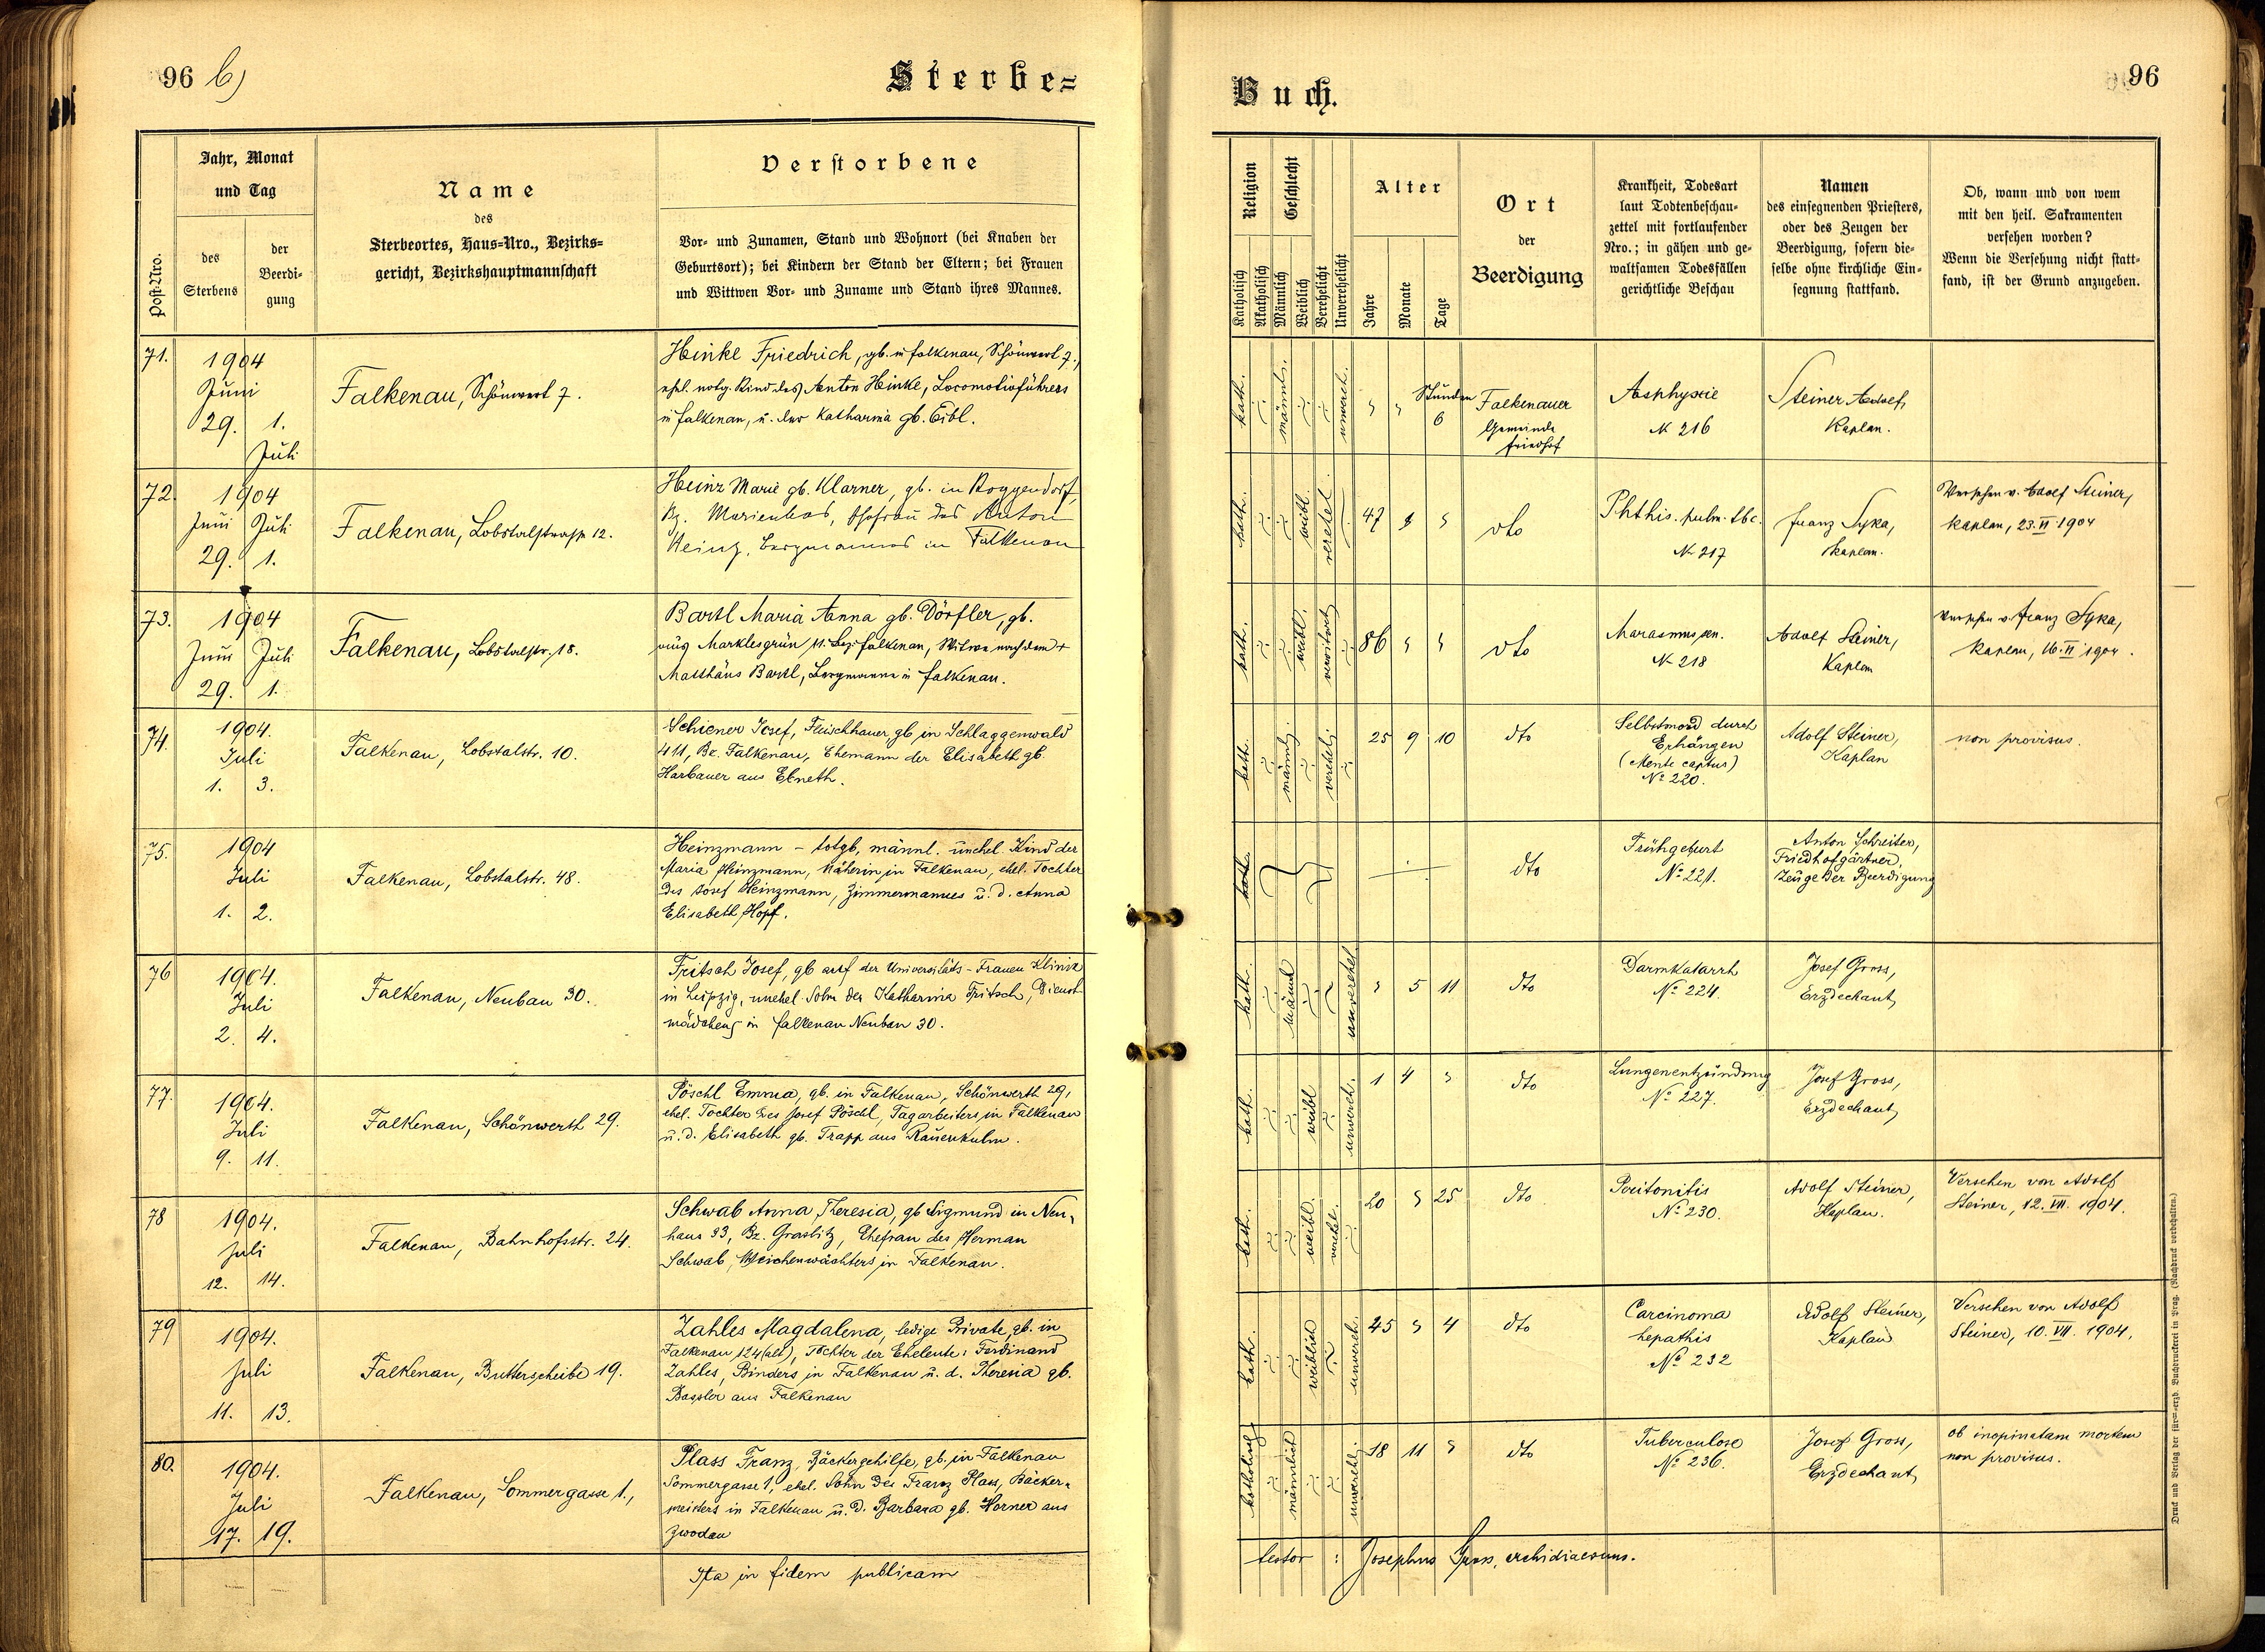 96 b)
Sterbe=
Jahr, Monat
und Tag
Name
des
Sterbeortes, Haus=Nro., Bezirks=
gericht, Bezirkshauptmannschaft
Verstorbene
Post=Nro.
des
Sterbens
der
Beerdi=
gung
Vor= und Zunamen, Stand und Wohnort (bei Knaben der
Geburtsort); bei Kindern der Stand der Eltern; bei Frauen
und Wittwen Vor= und Zuname und Stand ihres Mannes.
71.
1904
Juni
29. 1.
Juli
Falkenau, Schönwert 7.
Heinke Friedrich, gb. in Falkenau, Schönwert 7.,
ehel. notg. Kind des Anton Heinke, Locomotivführers
in Falkenau, u. der Katharina gb. Eibl.
72.
1904
Juni Juli
29. 1.
Falkenau, Lobstalstrasse 12.
Heinz Marie gb. Klarner, gb. in Roggendorf,
Bz. Marienbad, Ehefrau des Anton
Heinz, Bergmannes in Falkenau
73.
1904
Juni Juli
29. 1.
Falkenau, Lobstalstr. 18.
Bartl Maria Anna gb. Dörfler, gb.
aus Marklesgrün Bez. Falkenau, Witwe nach dem +
Matthäus Bartl, Bergmanns in Falkenau.
74.
1904.
Juli
1. 3.
Falkenau, Lobstalstr. 10.
Schiener Josef, Fleischhauer gb in Schlaggenwald
411, Bz. Falkenau, Ehemann der Elisabeth gb.
Harbauer aus Ebneth.
75.
1904
Juli
1. 2.
Falkenau, Lobstalstr. 48.
Heinzmann – totgb. männl. unehel. Kind der
Maria Heinzmann, Näherin in Falkenau, ehel. Tochter
des Josef Heinzmann, Zimmermannes u. d. Anna
Elisabeth Hopf.
76
1904.
Juli
2. 4.
Falkenau, Neubau 30.
Fritsch Josef, gb auf der Universitäts-Frauen Klinik
in Leipzig, unehel. Sohn der Katharina Fritsch, Dienst-
mädchens in Falkenau Neubau 30.
77.
1904.
Juli
9. 11.
Falkenau, Schönwerth 29.
Pöschl Emma, gb. in Falkenau, Schönwerth 29,
ehel. Tochter des Josef Pöschl, Tagarbeiters in Falkenau
u. d. Elisabeth gb. Trapp aus Rauenkulm.
78
1904.
Juli
12. 14.
Falkenau, Bahnhofsstr. 24.
Schwab Anna Theresia, gb Sigmund in Neu-
haus 33, Bz. Graslitz, Ehefrau des Herman
Schwab, Weichenwächters in Falkenau.
79
1904.
Juli
11. 13.
Falkenau, Butterscheibe 19.
Zahles Magdalena, ledige Private, gb. in
Falkenau 124 (alt), Tochter der Eheleute: Ferdinand
Zahles, Binders in Falkenau u. d. Theresia gb.
Bassler aus Falkenau
80.
1904.
Juli
17. 19.
Falkenau, Sommergasse 1.,
Plass Franz, Bäckergehilfe, gb. in Falkenau
Sommergasse 1, ehel. Sohn des Franz Plass, Bäcker-
meisters in Falkenau u. d. Barbara gb. Horner aus
Zwodau
Ita in fidem publicam
Buch.
96
Religion
Geschlecht
Alter
Ort
der
Beerdigung
Krankheit, Todesart
laut Todtenbeschau=
zettel mit fortlaufender
Nro.; in gähen und ge=
waltsamen Todesfällen
gerichtliche Beschau
Namen
des einsegnenden Priesters,
oder des Zeugen der
Beerdigung, sofern die=
selbe ohne kirchliche Ein=
segnung stattfand.
Ob, wann und von wem
mit den heil. Sakramenten
versehen worden?
Wenn die Versehung nicht statt=
fand, ist der Grund anzugeben.
Katholisch
Akatholisch
Männlich
Weiblich
Verehelicht
Unverehelicht
Jahre
Monate
Tage
kath. männl. unvereh.
Stunden
6
Falkenauer
Gemeinde
friedhof
Asphyxie
N 216
Steiner Adolf,
Kaplan.
kath. weibl. verehel.
47
dto
Phthis. pulm. tbc.
N 217
Franz Syka,
Kaplan.
Versehen v. Adolf Steiner,
Kaplan, 23. VI 1904
kath. weibl. verwitwet
86
dto
Marasmus sen.
N 218
Adolf Steiner,
Kaplan
Versehen v. Franz Syka,
Kaplan, 16. VI 1904.
kath. männl. verehel.
25 9 10
dto
Selbstmord durch
Erhängen
(Mente captus)
No 220.
Adolf Steiner,
Kaplan
non provisus.
kath.
dto
Frühgeburt
No 221.
Anton Schreiter,
Friedhofgärtner,
Zeuge der Beerdigung
kath. männl unverehel.
5 11
dto
Darmkatarrh
No 224.
Josef Gross,
Erzdechant
kath. weibl unvereh.
1 4
dto
Lungenentzündung
No 227.
Josef Gross,
Erzdechant
kath. weibl. verehel.
20 25
dto
Peritonitis
No 230.
Adolf Steiner,
Kaplan.
Versehen von Adolf
Steiner, 12. VII. 1904.
kath. weiblich unvereh.
45 4
dto
Carcinoma
hepathis
No 232
Adolf Steiner,
Kaplan
Versehen von Adolf
Steiner, 10. VII. 1904.
katholisch männlich unverehl.
18 11
dto
Tuberculose
No 236.
Josef Gross,
Erzdechant
ob inopinatam mortem
non provisus.
testor : Josephus Gross, archidiaconus.
Druck und Verlag der fürst=erzb. Buchdruckerei in Prag. (Nachdruck vorbehalten.)